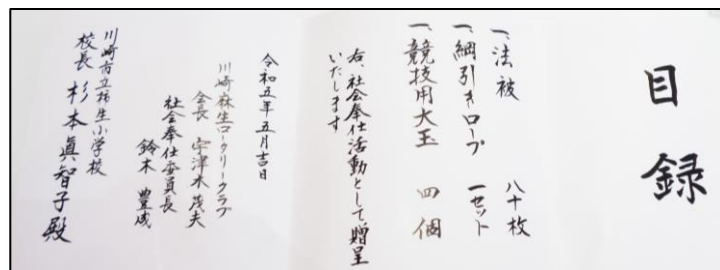 目録
一、法被 八十枚
一、綱引きロープ 一セット
一、競技用大玉 四個
右、社会奉仕活動として贈呈
いたします
令和五年五月吉日
川崎麻生ロータリークラブ
会長 宇津木茂夫
社会奉仕委員長
鈴木豊成
川崎市立柿生小学校
校長 杉本眞智子殿